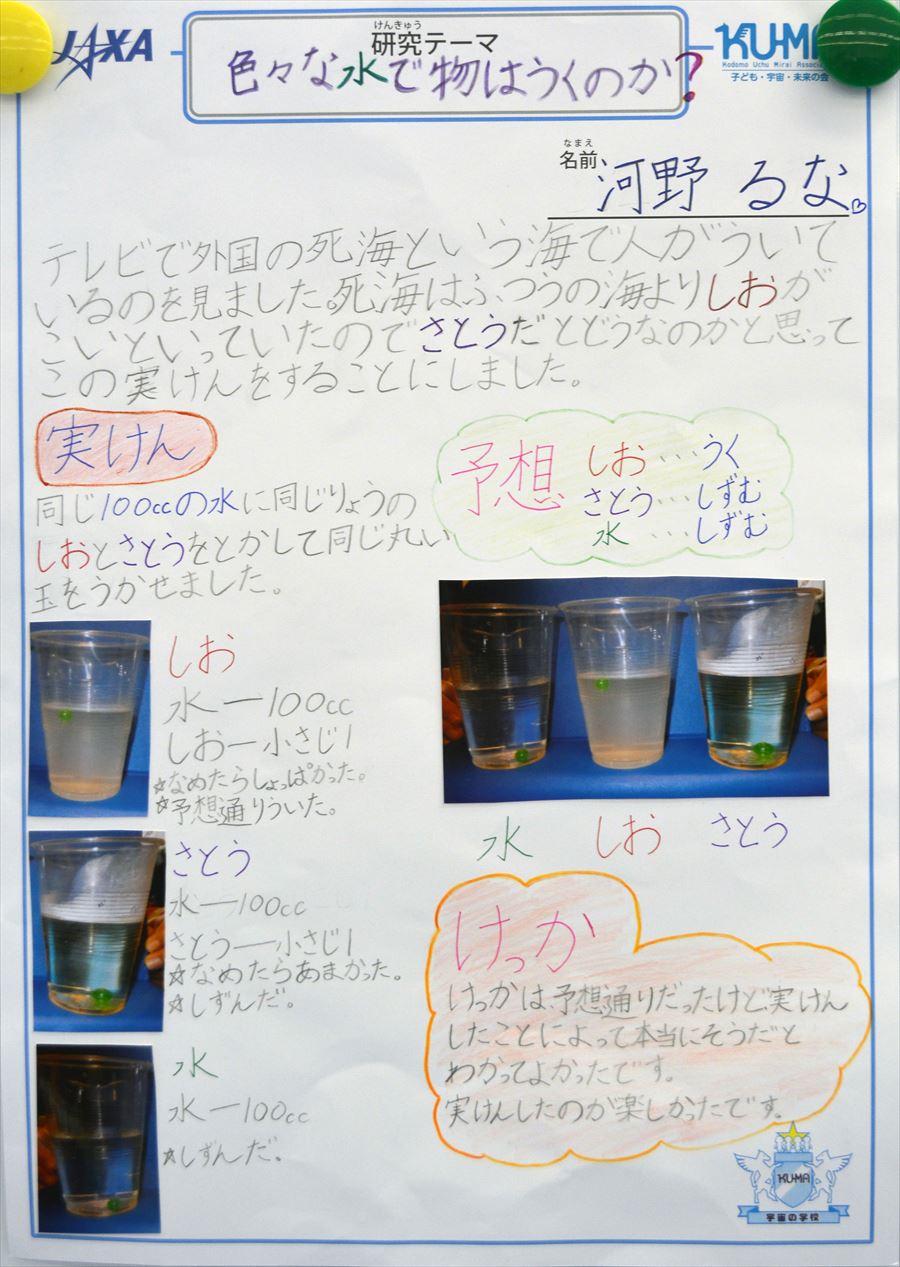 JAXA
けんきゅう
研究テーマ
色々な水で物はうくのか?
KU-MA
Kodomo Uchu Mirai Associa
子ども・宇宙・未来の会
なまえ
名前
河野 るな
テレビで外国の死海という海で人がういて
いるのを見ました。死海はふつうの海よりしおが
こいといっていたのでさとうだとどうなのかと思って
この実けんをすることにしました。
実けん
同じ100ccの水に同じりょうの
しおとさとうをとかして同じ丸い
玉をうかせました。
予想
しお…うく
さとう…しずむ
水…しずむ
しお
水ー100cc
しおー小さじ1
☆なめたらしょっぱかった。
☆予想通りういた。
さとう
水ー100cc
さとうー小さじ1
☆なめたらあまかった。
☆しずんだ。
水
水ー100cc
☆しずんだ。
水 しお さとう
けっか
けっかは予想通りだったけど実けん
したことによって本当にそうだと
わかってよかったです。
実けんしたのが楽しかったです。
KU-MA
宇宙の学校